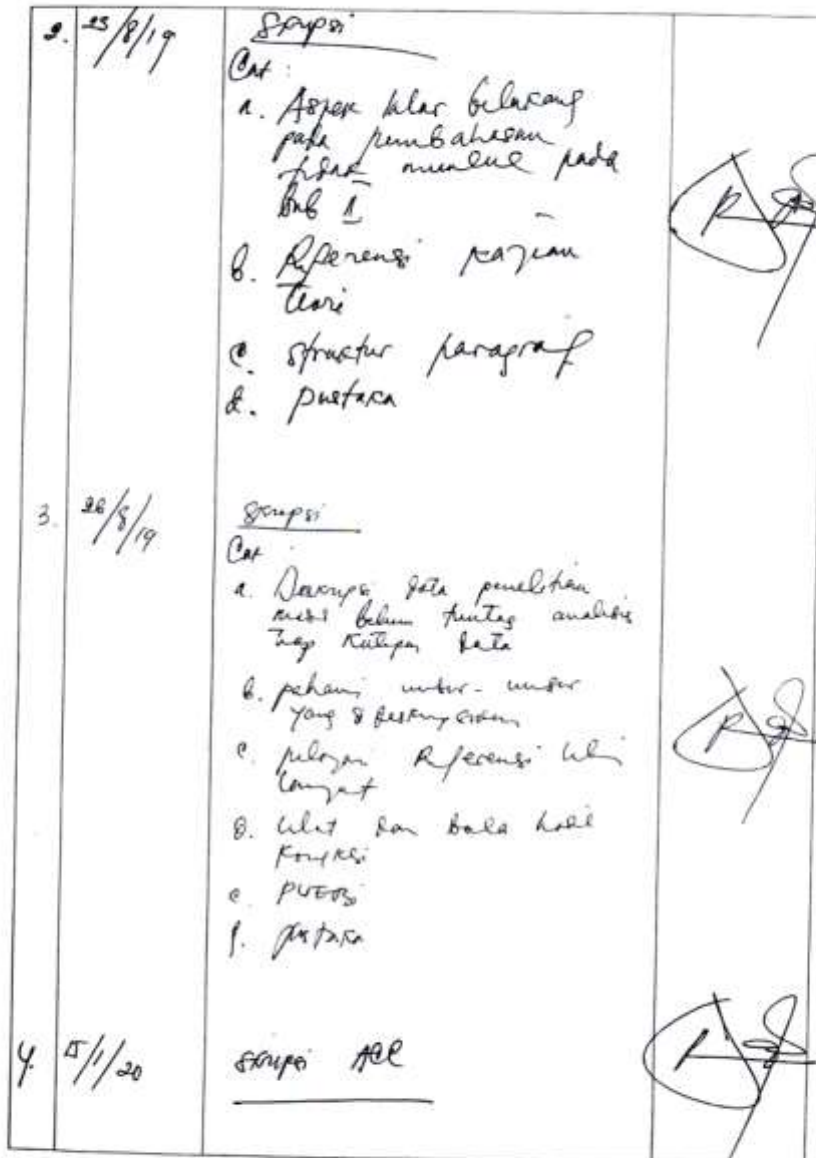 2. 23/8/19 Skripsi
Cat :
a. Aspek latar belakang
pada pembahasan
tidak muncul pada
bab 1
b. Referensi kajian
teori
c. struktur paragraf
d. pustaka
3. 26/8/19 Skripsi
Cat :
a. Deskripsi data penelitian
masi belum tuntas analisis
tiap kutipan data
b. pahami unsur-unsur
yang
c. pelajari Referensi lebih
lanjut
d. lihat dan baca hasil
koreksi
e. PUEBI
f. pustaka
4. 15/1/20 skripsi ACC